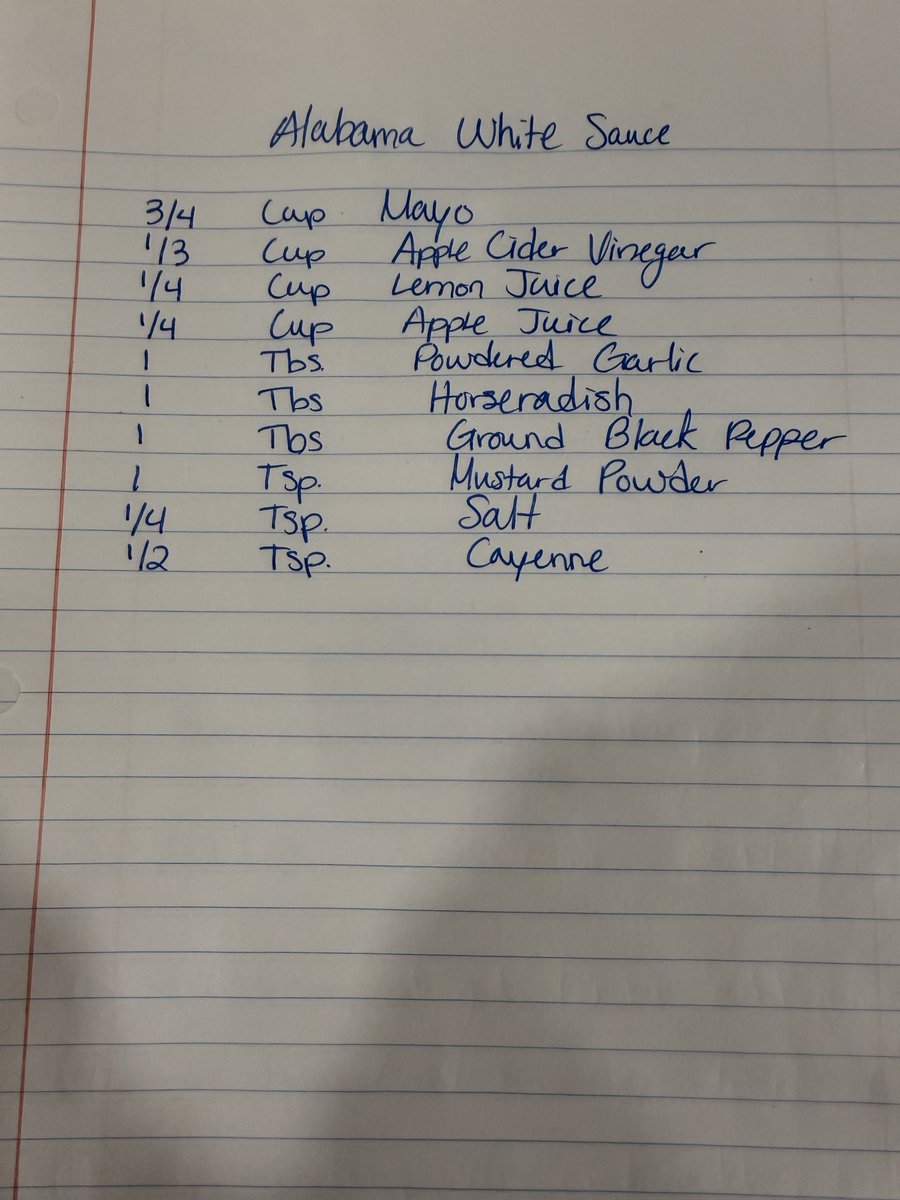 Alabama White Sauce
3/4 Cup Mayo
1/3 Cup Apple Cider Vinegar
1/4 Cup Lemon Juice
1/4 Cup Apple Juice
1 Tbs. Powdered Garlic
1 Tbs Horseradish
1 Tbs Ground Black Pepper
1 Tsp. Mustard Powder
1/4 Tsp. Salt
1/2 Tsp. Cayenne